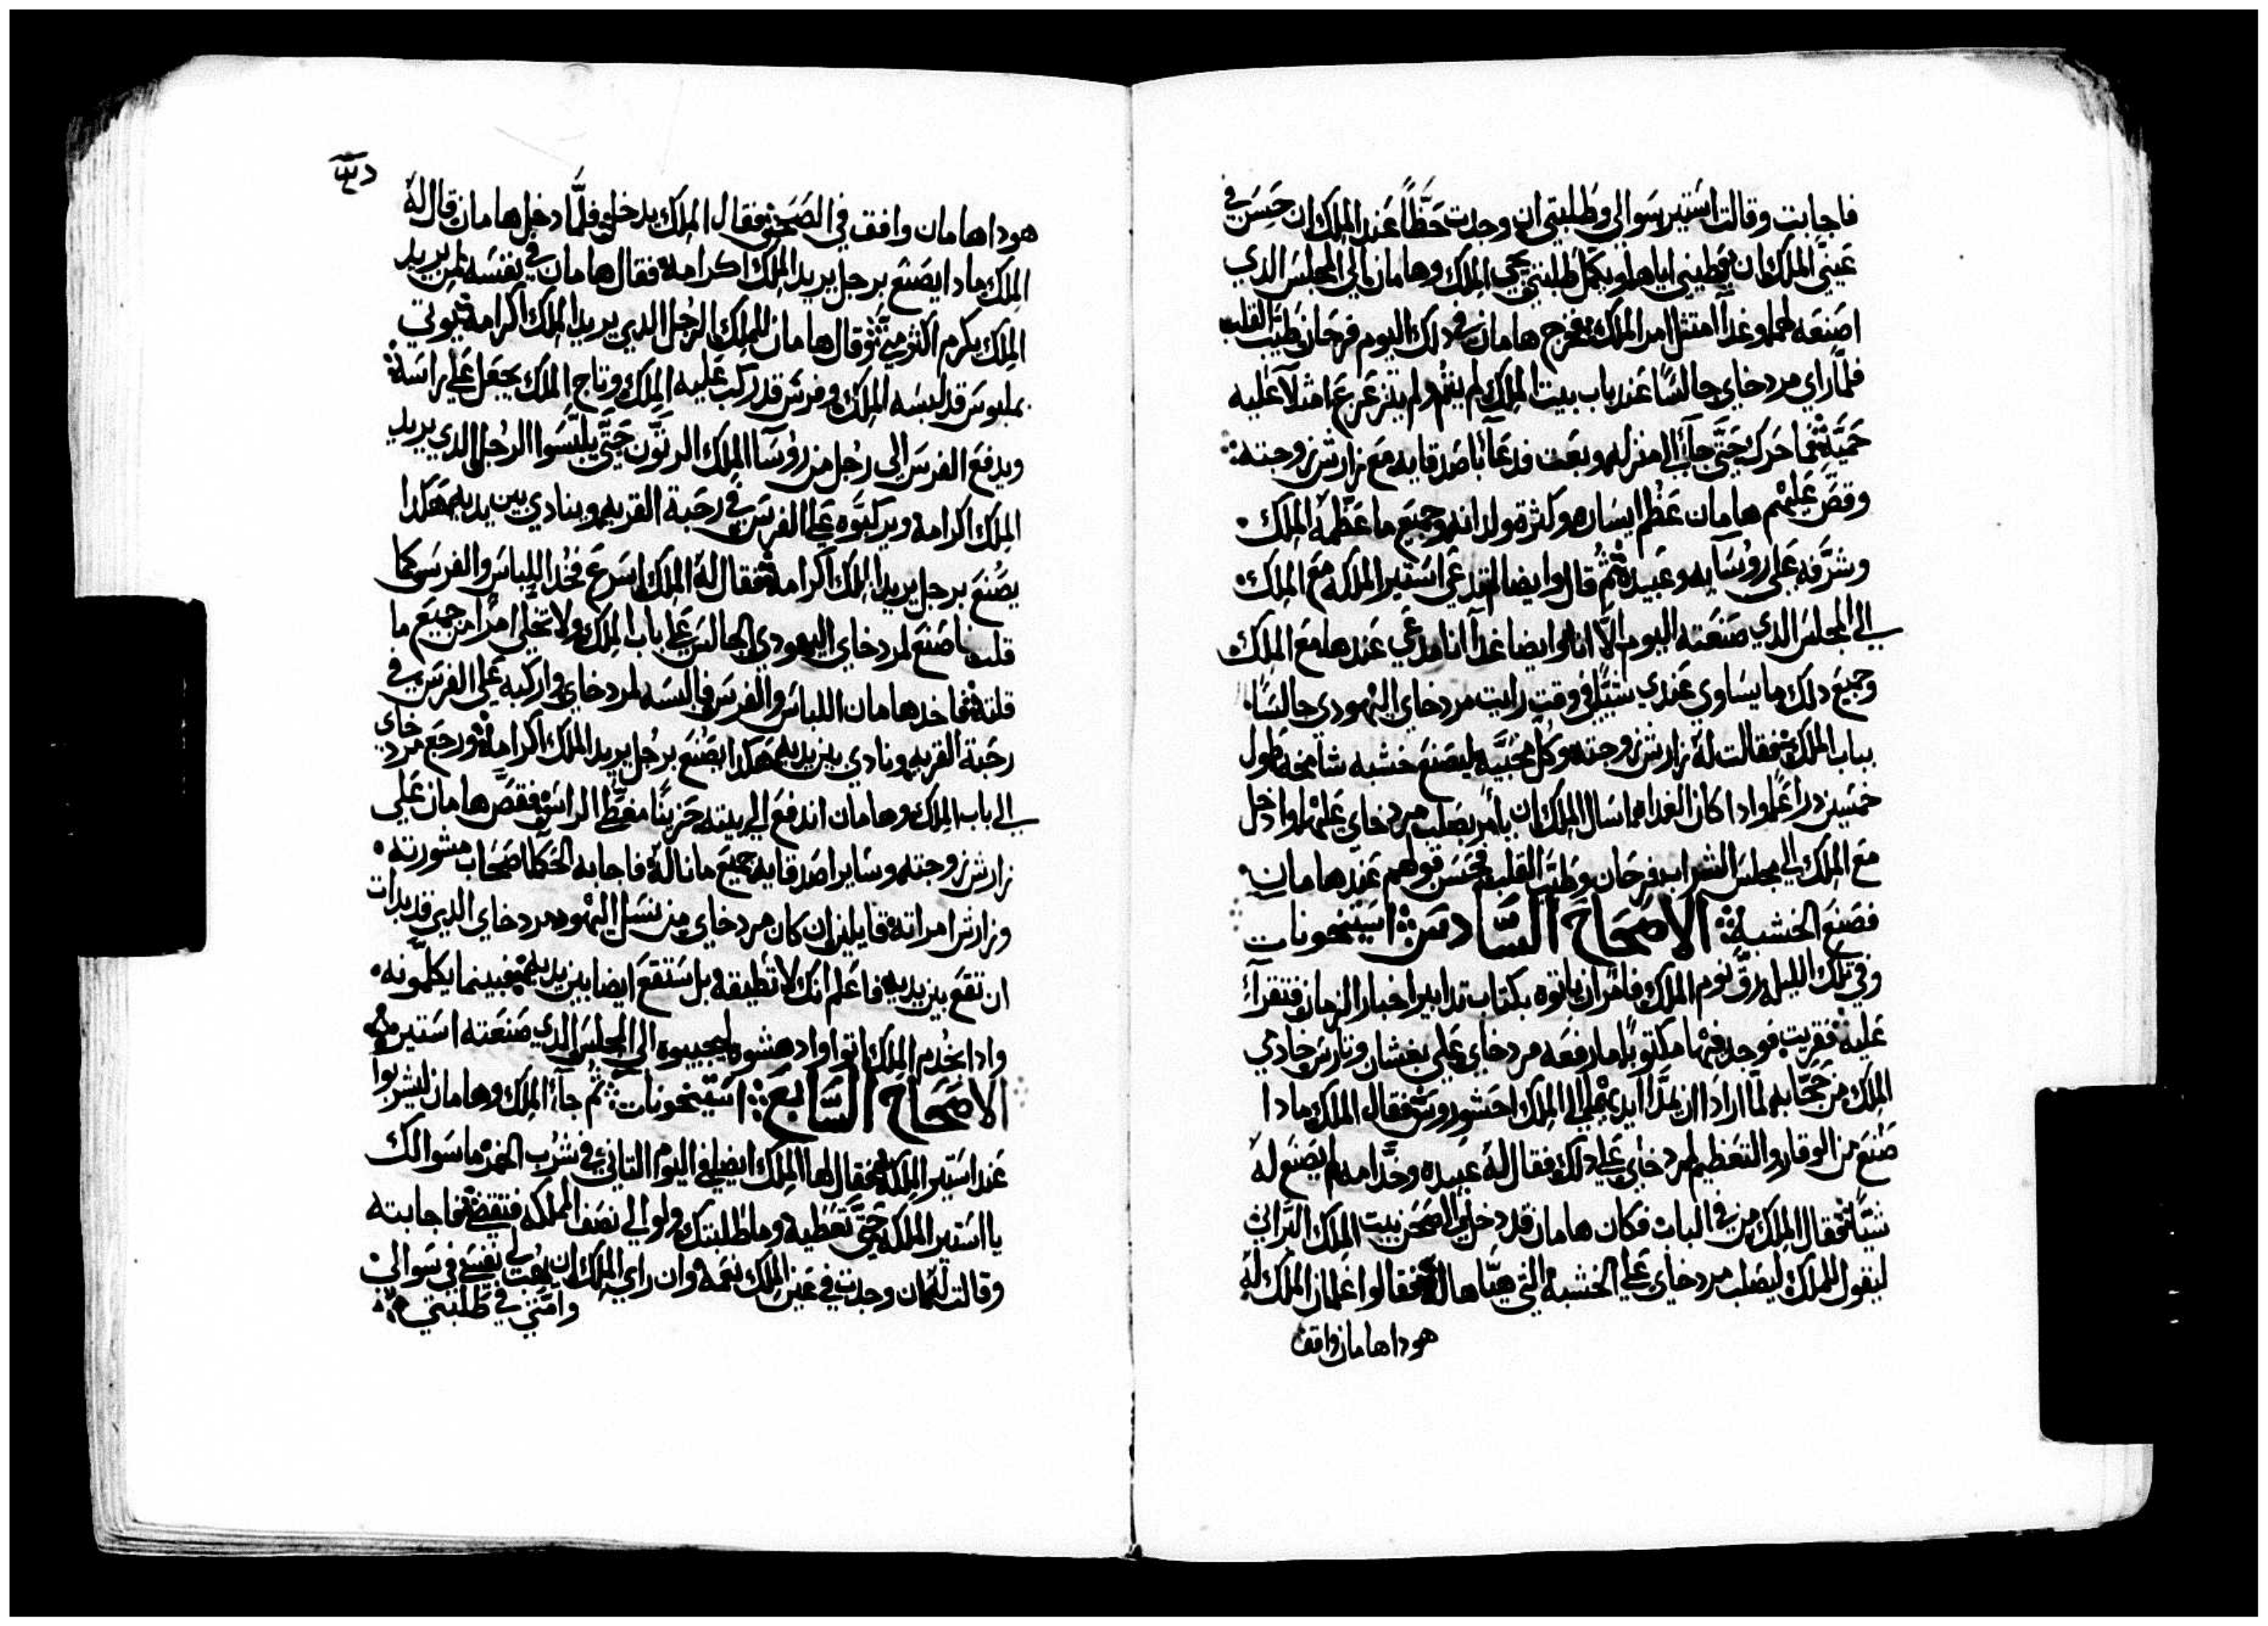 فاجابت وقالت استير سوالي وطلبتي ان وجدت حظاً عند الملك ان حسن في
عيني الملك ان يعطيني اياها ويكمل طلبتي يجي الملك وهامان الي المجلس الدي
اصنعه لهما وغداً امتثل امر الملك فخرج هامان في دلك اليوم فرحان طيب القلب
فلما راي مردخاي جالسًا عند باب بيت الملك لم يقم ولم يتزعزع امتلا عليه
حمية فما حرك حتي جآ الي منزله وبعت فدعا باصدقايه مع زارش زوجته
وقص عليهم هامان عظم ايساره وكثرة ولدانه وجميع ما عظمه الملك
وشرفه علي روسآيه وعبيده ثم قال وايضا لم تدعي استير الملكه مع الملك
الي المجلس الدي صنعته اليوم الا انا وايضا غداً انا مدعي عندها مع الملك
وجميع دلك ما يساوي عندي شيًا في وقت رايت مردخاي اليهودي جالسًا
بباب الملك فقالت له زارش زوجته وكل محبيه ليصنع خشبه شامخه طول
خمسين دراعًا وادا كان الغداه اسال الملك ان يأمر بصلب مردخاي عليها وادخل
مع الملك الي مجلس الشراب فرحان وطيب القلب فحسن قولهم عند هامان
فصنع الخشبة الاصحاح السادس استيخونات
وفي تلك الليله رق نوم الملك فامر ان ياتوه بكتاب تدابير اخبار الزمان فتقرأ
عليه فقريت فوجد فيها مكتوبًا ما رفعه مردخاي علي بغشان وتارش خادمي
الملك من حجابه لما ارادا ان يمدا ايديهما الي الملك احشوروش فقال الملك مادا
صنع من الوقار والتعظيم لمردخاي علي دلك فقال له عبيده وخدامه لم يصنع له
شيًا فقال الملك من في الباب فكان هامان قد دخل الي صحن بيت الملك البراني
ليقول للملك ليصلب مردخاي علي الخشبة التي هيّاها له فقالوا غلمان الملك له
هودا هامان واقف
هودا هامان واقف في الصحن فقال الملك يدخل فلمّا دخل هامان قال له
الملك مادا يصنع برجل يريد الملك اكرامه فقال هامان في نفسه لمن يريد
الملك يكرم اكثر مني وقال هامان للملك الرجل الدي يريد الملك اكرامه يوتي
بملبوس قد لبسه الملك وفرس قد ركب عليه الملك وتاج الملك يجعل علي راسه
ويدفع الفرس الي رجل من روسآ الملك الرتون حتي يلبسوا الرجل الدي يريد
الملك اكرامه ويركبوه علي الفرس في رحبة القريه وينادي بين يديه هكدا
يصنع برجل يريد الملك اكرامه فقال له الملك اسرع فخد اللباس والفرس كما
قلت فاصنع لمردخاي اليهودي الجالس علي باب الملك ولا تخلي امرًا من جميع ما
قلته فاخد هامان اللباس والفرس فالبسه لمردخاي واركبه علي الفرس في
رحبة القريه ونادي بين يديه هكدا يصنع برجل يريد الملك اكرامه ورجع مردخاي
الي باب الملك وهامان اندفع الي بيته حزينًا مغطي الراس فقص هامان علي
زارش زوجته وساير اصدقايه جميع ما ناله فاجابه الحكما اصحاب مشورته
وزارش امراته قايلين ان كان مردخاي من نسل اليهود مردخاي الدي قد بدات
ان تقع بين يديه فاعلم انك لا تطيقه بل ستقع ايضا بين يديه فبينما يكلمونه
وادا بخدم الملك اتوا وادهشوه ليجيبوه الي المجلس الدي صنعته استير
الاصحاح السابع استيخونات ثم جآ الملك وهامان ليشربوا
عند استير الملكه فقال لها الملك ايضا في اليوم التاني في شرب الخمر ما سوالك
يا استير الملكه حتي تعطيه وما طلبتك ولو الي نصف المملكه فتقضي فاجابته
وقالت له ان وجدت في عين الملك نعمه وان راي الملك ان يهب لي نفسي في سوالي
وامتي في طلبتي